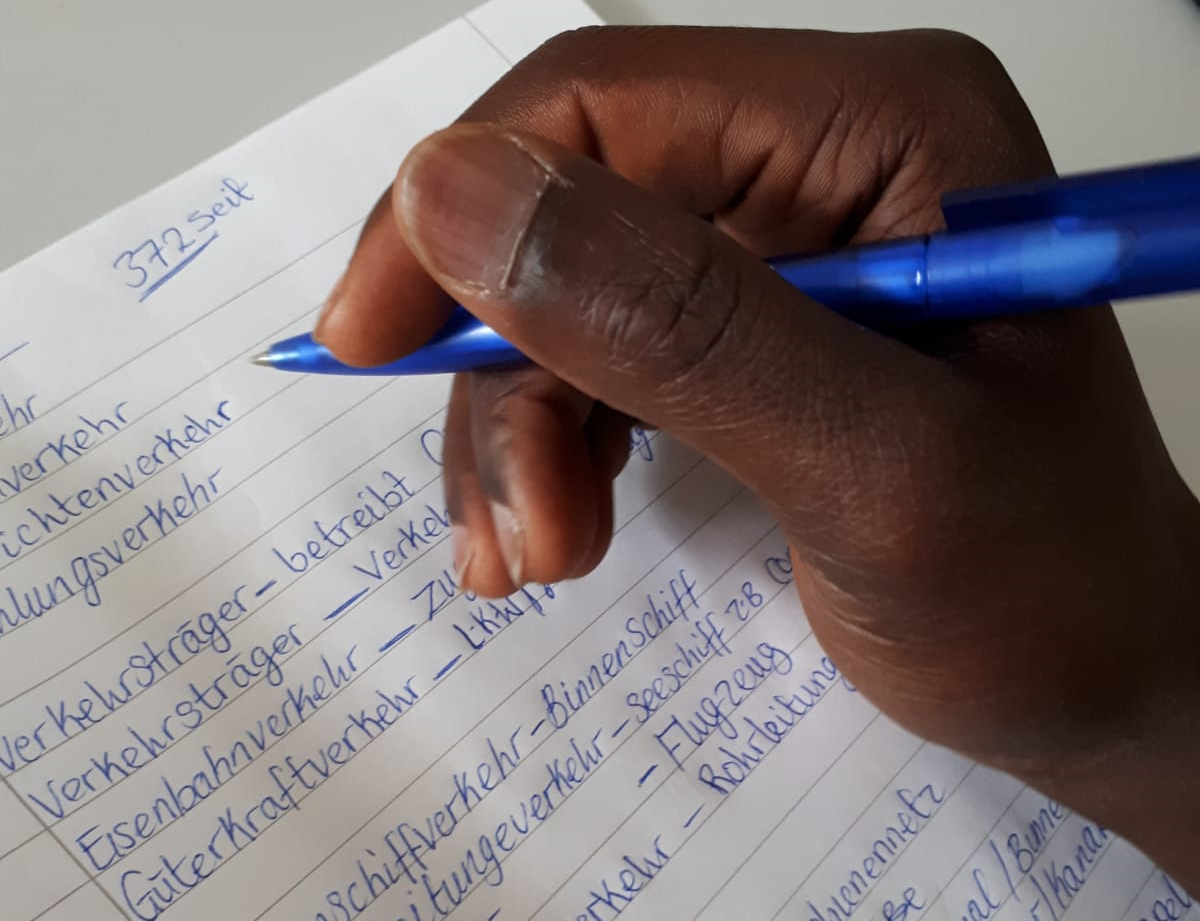 372 Seit
ehr
verkehr
ichtenverkehr
hlungsverkehr
Verkehrsträger - betreibt
Verkehrsträger - Verkeh
Eisenbahnverkehr - Zu
Güterkraftverkehr - LKW
nschiffverkehr - Binnenschiff
eitungeverkehr - Seeschiff zB co
- Flugzeug
erkehr - Rohrleitung
hienennetz
al / Binne
/ Kanal